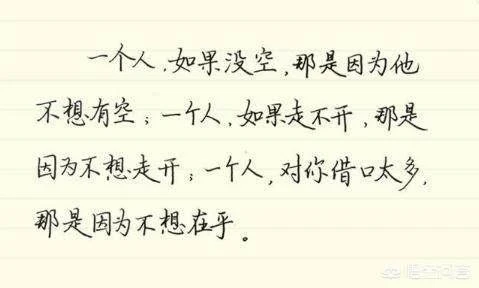 一个人，如果没空，那是因为他
不想有空；一个人，如果走不开，那是
因为不想走开；一个人，对你借口太多，
那是因为不想在乎。
悟空问答